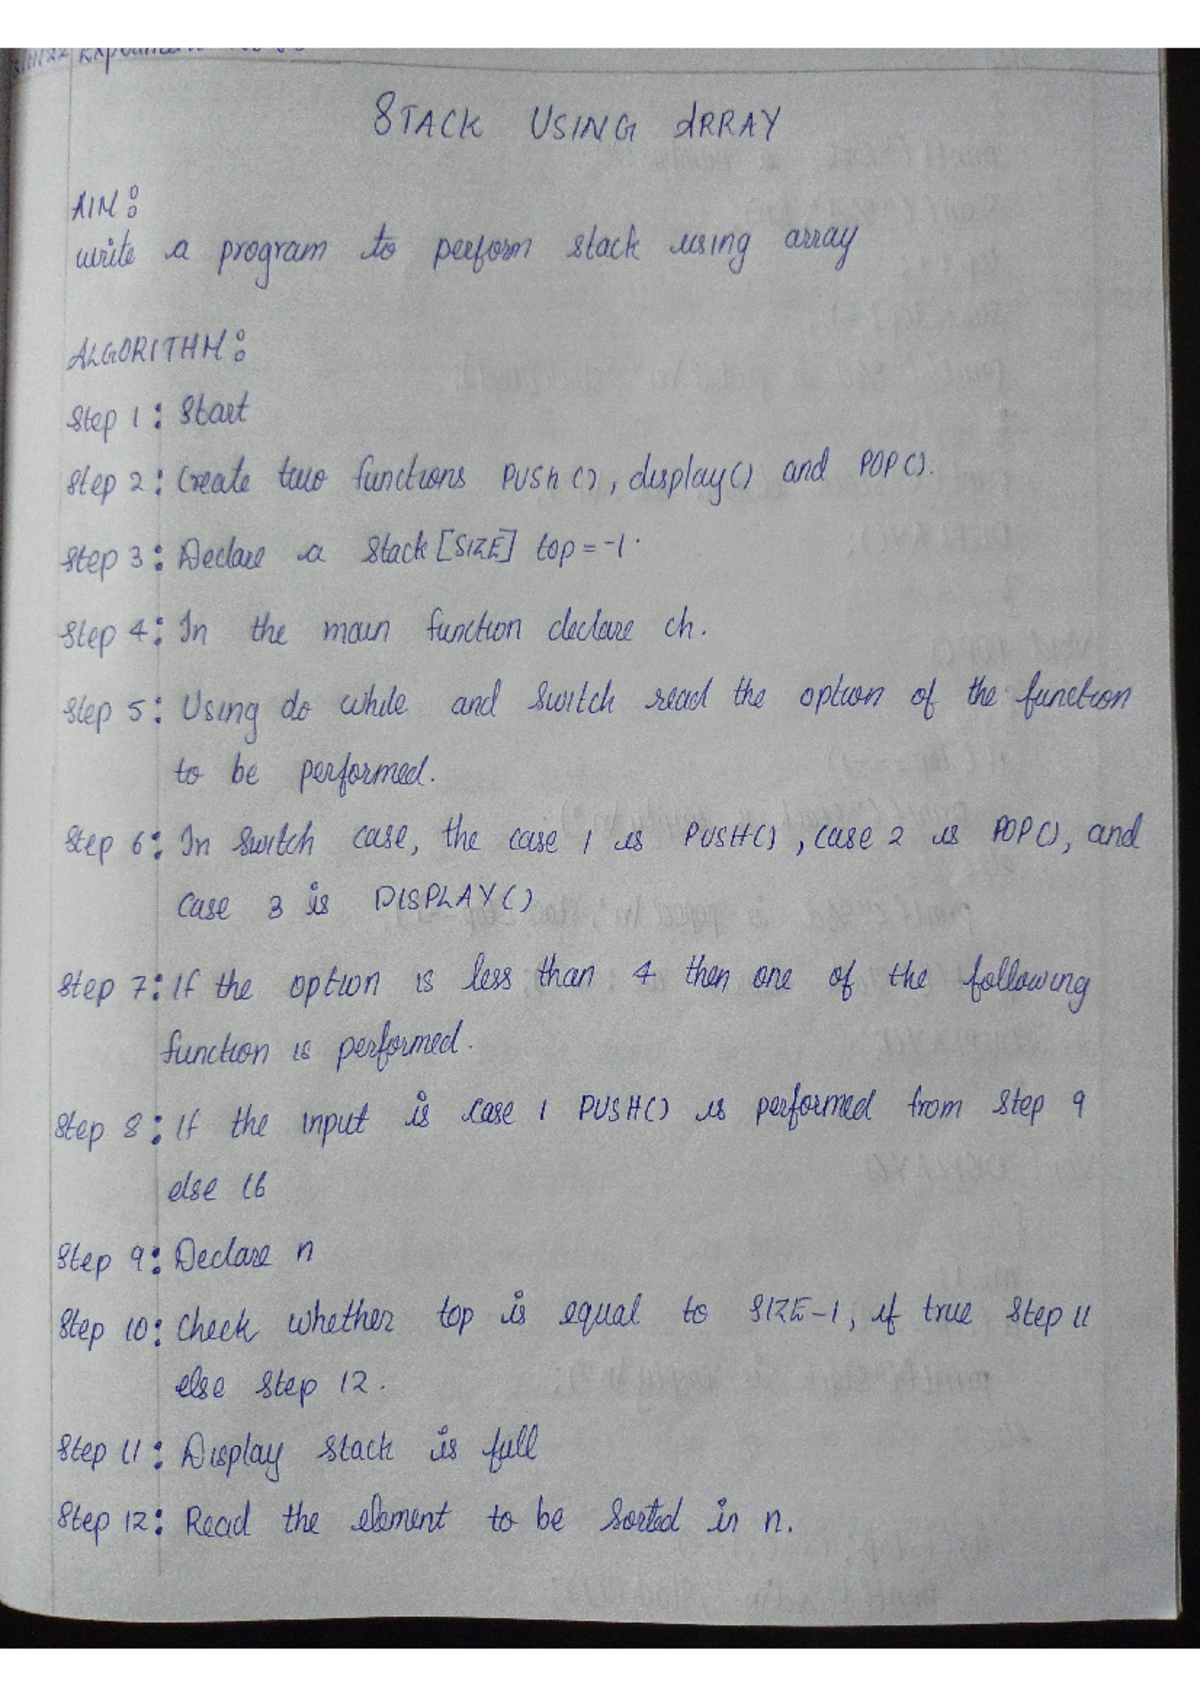 STACK USING ARRAY
AIM:
write a program to perform stack using array
ALGORITHM:
Step 1: Start
Step 2: Create two functions PUSH(), display() and POP().
Step 3: Declare a Stack[SIZE] top=-1.
Step 4: In the main function declare ch.
Step 5: Using do while and switch read the option of the function
to be performed.
Step 6: In switch case, the case 1 is PUSH(), case 2 is POP(), and
case 3 is DISPLAY()
Step 7: If the option is less than 4 then one of the following
function is performed.
Step 8: If the input is case 1 PUSH() is performed from Step 9
else 16
Step 9: Declare n
Step 10: Check whether top is equal to SIZE-1, if true Step 11
else step 12.
Step 11: Display stack is full
Step 12: Read the element to be Sorted in n.